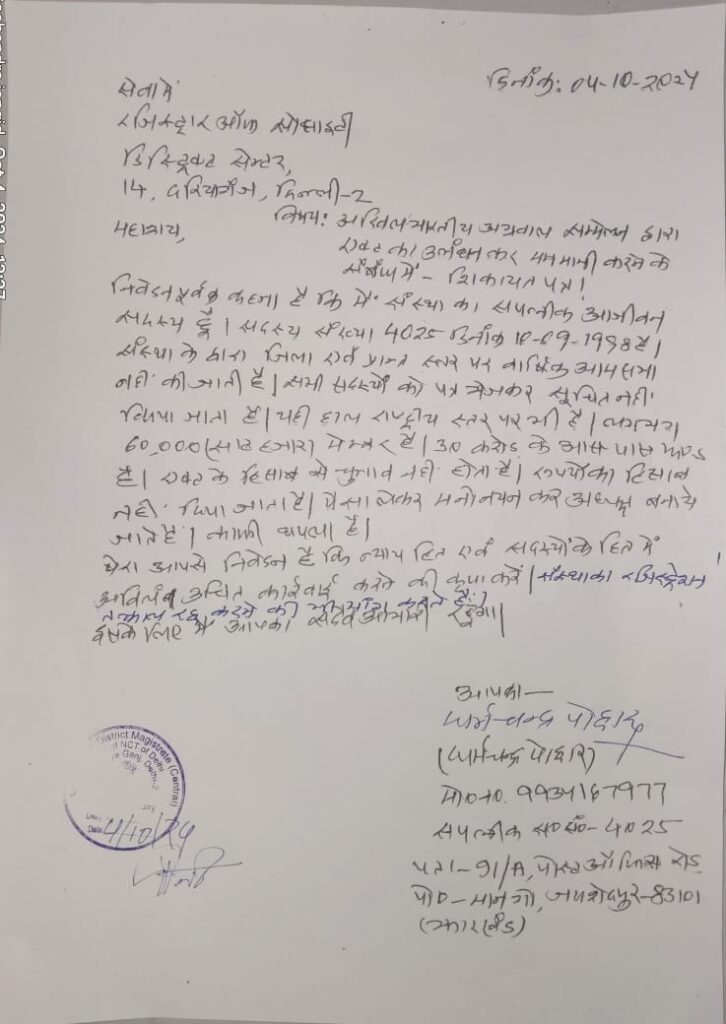 दिनांक: 04-10-2024
सेवा में
रजिस्ट्रार ऑफ सोसाइटी
डिस्ट्रिक्ट सेन्टर,
14, दरियागंज, दिल्ली-2
विषय: अखिल भारतीय अग्रवाल सम्मेलन द्वारा
महाशय,
एक्ट का उलंघन कर मनमानी करने के
संबंध में - शिकायत पत्र!
निवेदन पूर्वक कहना है कि मैं संस्था का सपत्नीक आजीवन
सदस्य हूँ। सदस्य संख्या 4025 दिनांक 10-09-1998 है।
संस्था के द्वारा जिला एवं प्रान्त स्तर पर वार्षिक आमसभा
नहीं की जाती है। सभी सदस्यों को पत्र भेजकर सूचित नहीं
किया जाता है। यही हाल राष्ट्रीय स्तर पर भी है। लगभग
60,000 (साठ हजार) मेम्बर है। 30 करोड़ के आस पास फण्ड
है। एक्ट के हिसाब से चुनाव नहीं होता है। रूपयों का हिसाब
नहीं दिया जाता है। पैसा लेकर मनोनयन कर अध्यक्ष बनाये
जाते हैं। काफी घपला है।
मेरा आपसे निवेदन है कि न्याय हित एवं सदस्यों के हित में
अविलंब उचित कार्रवाई करने की कृपा करें। संस्था का रजिस्ट्रेशन
तत्काल रद्द करने की करते हैं।
इसके लिए मैं आपका सदैव आभारी रहूँगा।
आपका—
धर्मचन्द्र पोद्दार
(धर्मचन्द्र पोद्दार)
मो० न०. 9934167977
सपत्नीक स० सं०- 4025
पता- 91/A, पोस्ट ऑफिस रोड
पो०- मानगो, जमशेदपुर-83101
(झारखंड)
District Magistrate (Central)
of NCT of Delhi
Ganj, Delhi-2
Date
4/10/24